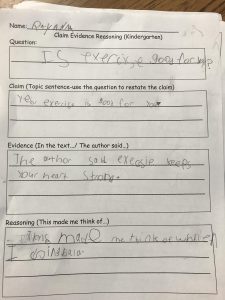 Name:
Claim Evidence Reasoning (Kindergarten)
Question:
Is exercise good for
Claim (Topic sentence-use the question to restate the claim)
Yes exercise is good for you
Evidence (In the text.../ The author said...)
The author said excesie keeps
your heart strong.
Reasoning (This made me think of...)
This made me think of when
I